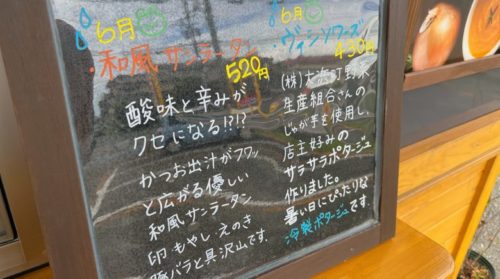 6月
・和風サンラータン
520円
酸味と辛みが
クセになる!?!?
かつお出汁がフワッ
と広がる優しい
和風サンラータン
卵 もやし えのき
豚バラと具沢山です。
6月
・ヴィシソワーズ
430円
(株)大浜町野菜
生産組合さんの
じゃが芋を使用し、
店主好みの
サラサラポタージュ
作りました。
暑い日にぴったりな
冷製ポタージュです。